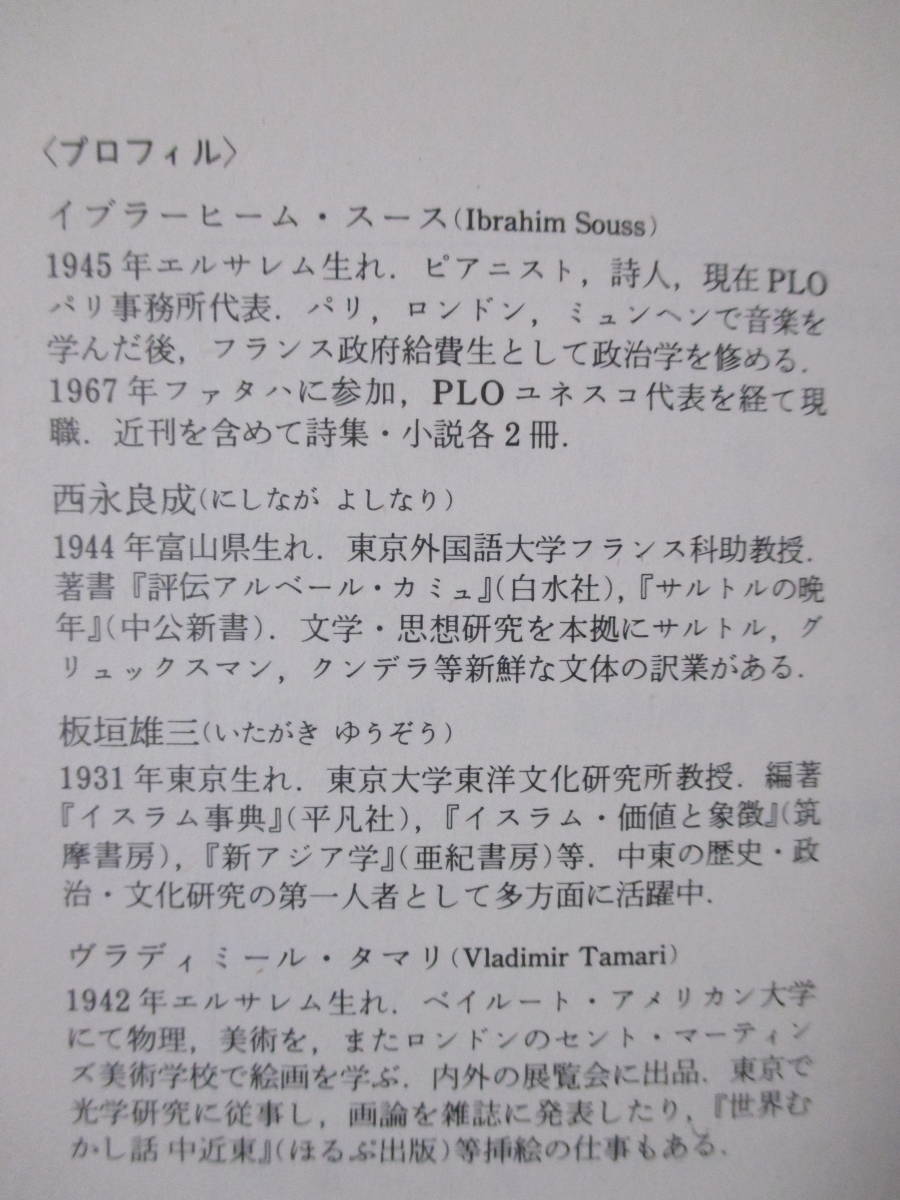 〈プロフィル〉
イブラーヒーム・スース(Ibrahim Souss)
1945年エルサレム生れ．ピアニスト，詩人，現在PLO
パリ事務所代表．パリ，ロンドン，ミュンヘンで音楽を
学んだ後，フランス政府給費生として政治学を修める．
1967年ファタハに参加，PLOユネスコ代表を経て現
職．近刊を含めて詩集・小説各2冊．
西永良成(にしなが よしなり)
1944年富山県生れ．東京外国語大学フランス科助教授．
著書『評伝アルベール・カミュ』(白水社)，『サルトルの晩
年』(中公新書)．文学・思想研究を本拠にサルトル，グ
リュックスマン，クンデラ等新鮮な文体の訳業がある．
板垣雄三(いたがき ゆうぞう)
1931年東京生れ．東京大学東洋文化研究所教授．編著
『イスラム事典』(平凡社)，『イスラム・価値と象徴』(筑
摩書房)，『新アジア学』(亜紀書房)等．中東の歴史・政
治・文化研究の第一人者として多方面に活躍中．
ヴラディミール・タマリ(Vladimir Tamari)
1942年エルサレム生れ．ベイルート・アメリカン大学
にて物理，美術を，またロンドンのセント・マーティン
ズ美術学校で絵画を学ぶ．内外の展覧会に出品．東京で
光学研究に従事し，画論を雑誌に発表したり，『世界む
かし話 中近東』(ほるぷ出版)等挿絵の仕事もある．